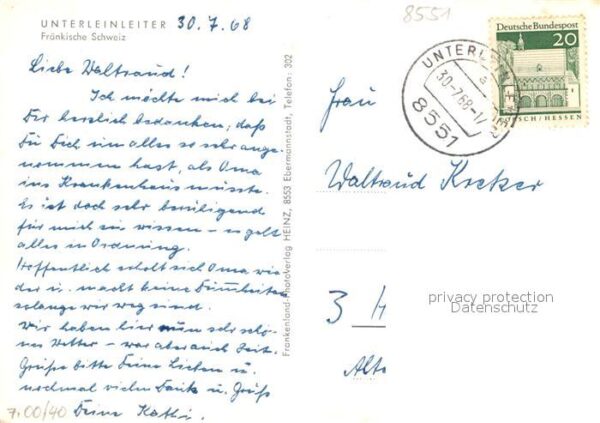 UNTERLEINLEITER 30.7.68
Fränkische Schweiz
Liebe Waltraud!
Ich möchte mich bei
Dir herzlich bedanken, daß
Du Dich um alles so sehr ange-
nommen hast, als Oma
ins Krankenhaus müsste.
Es ist doch sehr beruhigend
für mich zu wissen – es geht
alles in Ordnung.
Hoffentlich erholt sich Oma wie
der u. macht keine Dummheiten
solange wir weg sind.
Wir haben hier nun sehr schö-
nes Wetter – war aber auch Zeit.
Grüße bitte Deine Lieben u.
nochmal vielen Dank u. Gruß
Deine Kathi.
7.00/40
Frankenland-Photoverlag HEINZ, 8553 Ebermannstadt, Telefon: 302
8551
Deutsche Bundespost
20
LORSCH/HESSEN
UNTERLEINLEITER
a
30.-7.68-17
8551
Frau
Waltraud Kreker
3 H
Alte
privacy protection
Datenschutz